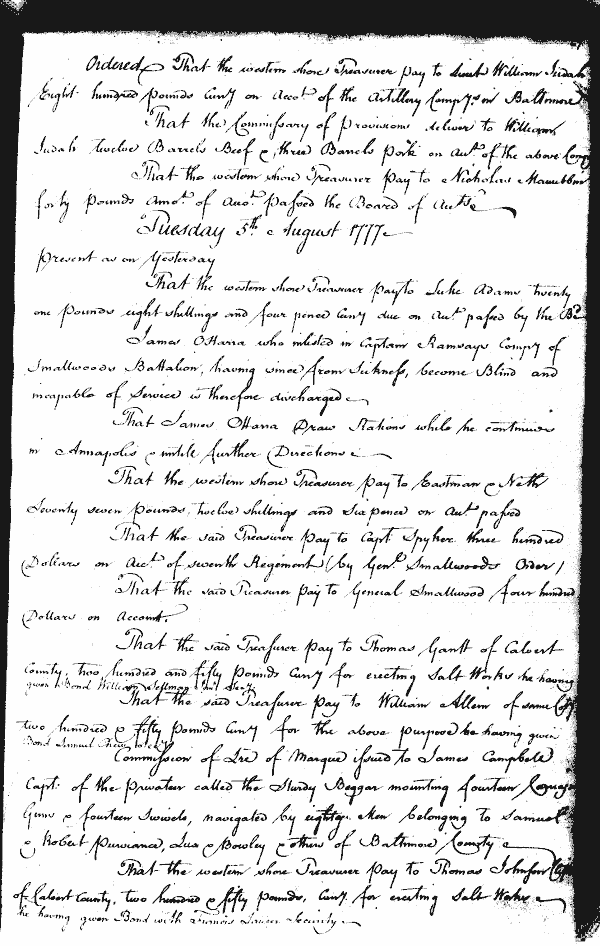 Ordered That the western shore Treasurer pay to Lieut William Judah
Eight hundred Pounds Curry on Accot. of the Artillery Compys. in Baltimore
That the Commissary of Provisions deliver to William
Judah twelve Barrels Beef & three Barrels Pork on Act. of the above Comp
That the western shore Treasurer Pay to Nicholas
forty Pounds Amot. of Accot. passed the Board of Accts
Tuesday 5th August 1777
Present as on Yesterday
That the western shore Treasurer pay to Luke Adams twenty
one Pounds eight shillings and four pence Curry due on Act. passed by the Bd
James OHara who inlisted in Captain Ramsays Compy of
Smallwoods Battalion, having since from Sickness, become Blind and
incapable of Service is therefore discharged
That James OHara Draw Rations while he continues
in Annapolis & untile further Directions
That the western shore Treasurer Pay to Eastman & Neth
Seventy seven Pounds, twelve shillings and Six pence on Act. passed
That the said Treasurer pay to Capt Spyker three hundred
Dollars on Acct. of seventh Regiment (by Genl. Smallwoods Order)
That the said Treasurer pay to General Smallwood four hundred
Dollars on Account.
That the said Treasurer pay to Thomas Gantt of Calvert
County, two hundred and fifty Pounds Curry for erecting Salt Works he having
given Bond William Sellman his Secy
That the said Treasurer pay to William Allein of same Coty
two hundred & fifty Pounds Curry for the above purpose he having given
Bond Samuel Chew
Commission of Lre of Marque issued to James Campbell
Capt. of the Privateer called the Sturdy Beggar mounting fourteen Carriage
Guns & fourteen Swivels, navigated by eighty Men belonging to Samuel
& Robert Purviance, Lux & Bowley & others of Baltimore County
That the western shore Treasurer Pay to Thomas Johnson
of Calvert County, two hundred & fifty Pounds, Curry for erecting Salt Works
he having given Bond with Francis Security